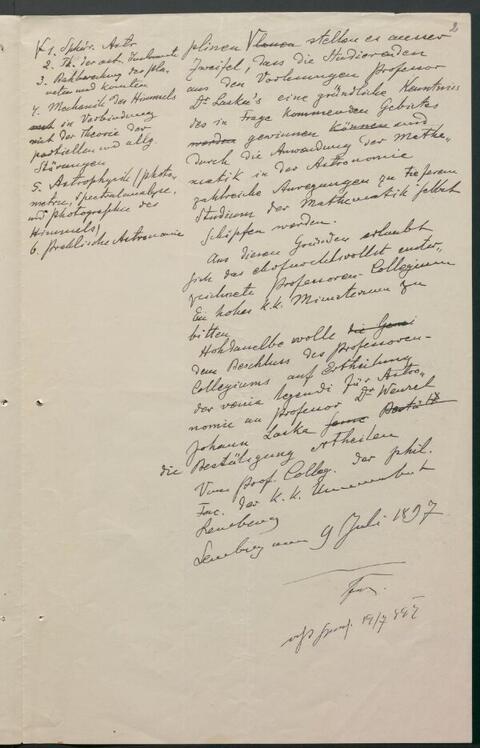 2
1. Sphär. Astr
2. Th. der astr. Instrumente
3. Bahn der Pla-
neten und Kometen
4. Mechanik des Himmels
in Verbindung
mit der Theorie der
partiellen und allg.
Störungen
5. Astrophysik (photo-
metrie, Spectralanalyse,
und photographie des
Himmels)
6. Praktische Astronomie
plinen stellen es ausser
Zweifel, dass die Studierenden
aus den Vorlesungen Professor
Dr Laska's eine gründliche Kenntniss
des in frage kommenden Gebietes
werden gewinnen können und
durch die Anwendung der Mathe-
matik in der Astronomie
zahlreiche Anregungen zu tieferem
Studium der Mathematik selbst
schöpfen werden.
Aus diesen Gründen erlaubt
sich das ehrfurchtsvollst unter-
zeichnete Professoren-Collegium
Ein hohes k.k. Ministerium zu
bitten
Hochdasselbe wolle die
dem Beschluss des Professoren-
Collegiums auf Ertheilung
der venia legendi für Astro-
nomie an Professor Dr Wenzel
Johann Laska
die Bestätigung ertheilen
Vom Prof. Colleg. der phil.
Fac. der k.k. Universität
Lemberg
Lemberg am 9 Juli 1897
19/7